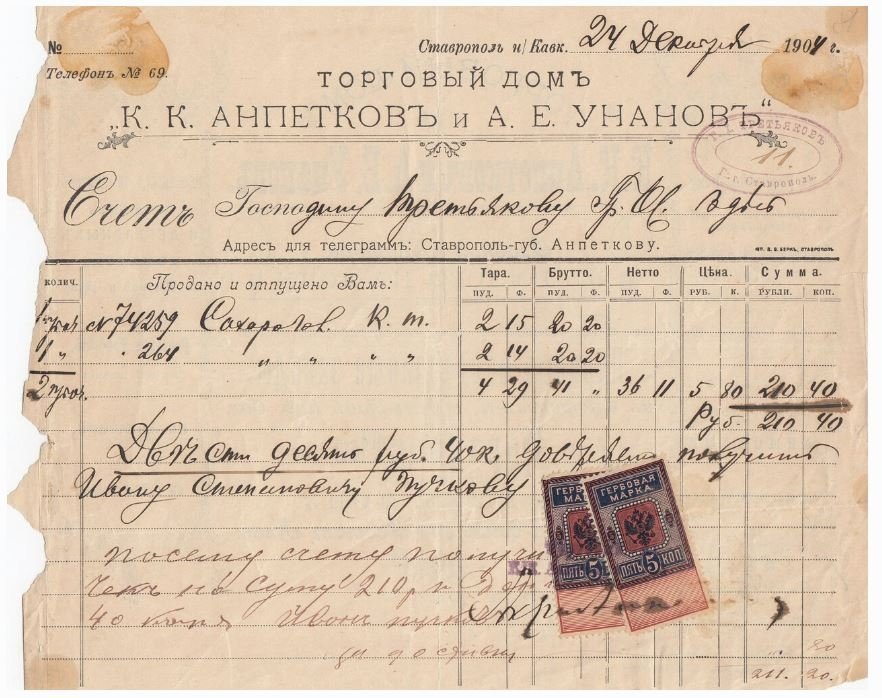 №
Ставрополь н/Кавк. 24 Декабря 1904 г.
Телефонъ № 69.
ТОРГОВЫЙ ДОМЪ
„К. К. АНПЕТКОВЪ и А. Е. УНАНОВЪ“
ТРЕТЬЯКОВЪ
11.
г. Ставрополь.
Счетъ Господину Третьякову Г. И. здѣсь
Адресъ для телеграммъ: Ставрополь-губ. Анпеткову.
ТИП. БЕРКЪ, СТАВРОПОЛЬ
КОЛИЧ. Продано и отпущено Вамъ: Тара. Брутто. Нетто Цѣна. Сумма.
ПУД. Ф. ПУД. Ф. ПУД. Ф. РУБ. К. РУБЛИ. КОП.
1 № 74259 К. т. 2 15 20 20
1 „ 264 „ „ „ „ 2 14 20 20
2 4 29 41 „ 36 11 5 80 210 40
Руб. 210 40
Двѣсти десять руб. 40 к. получить
Ивану Степановичу Пучкову
ГЕРБОВАЯ МАРКА
ГЕРБОВАЯ МАРКА
ПЯТЬ 5
ПЯТЬ 5 КОП
посему счету получи
Чекъ на сумму 210 р
40 Иванъ
за доставку 80
211. 20.